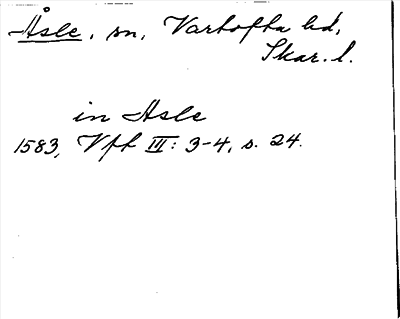 Åsle, sn, Vartofta hd,
Skar. l.
in Asle
1583, Vfh III: 3-4, s. 24.